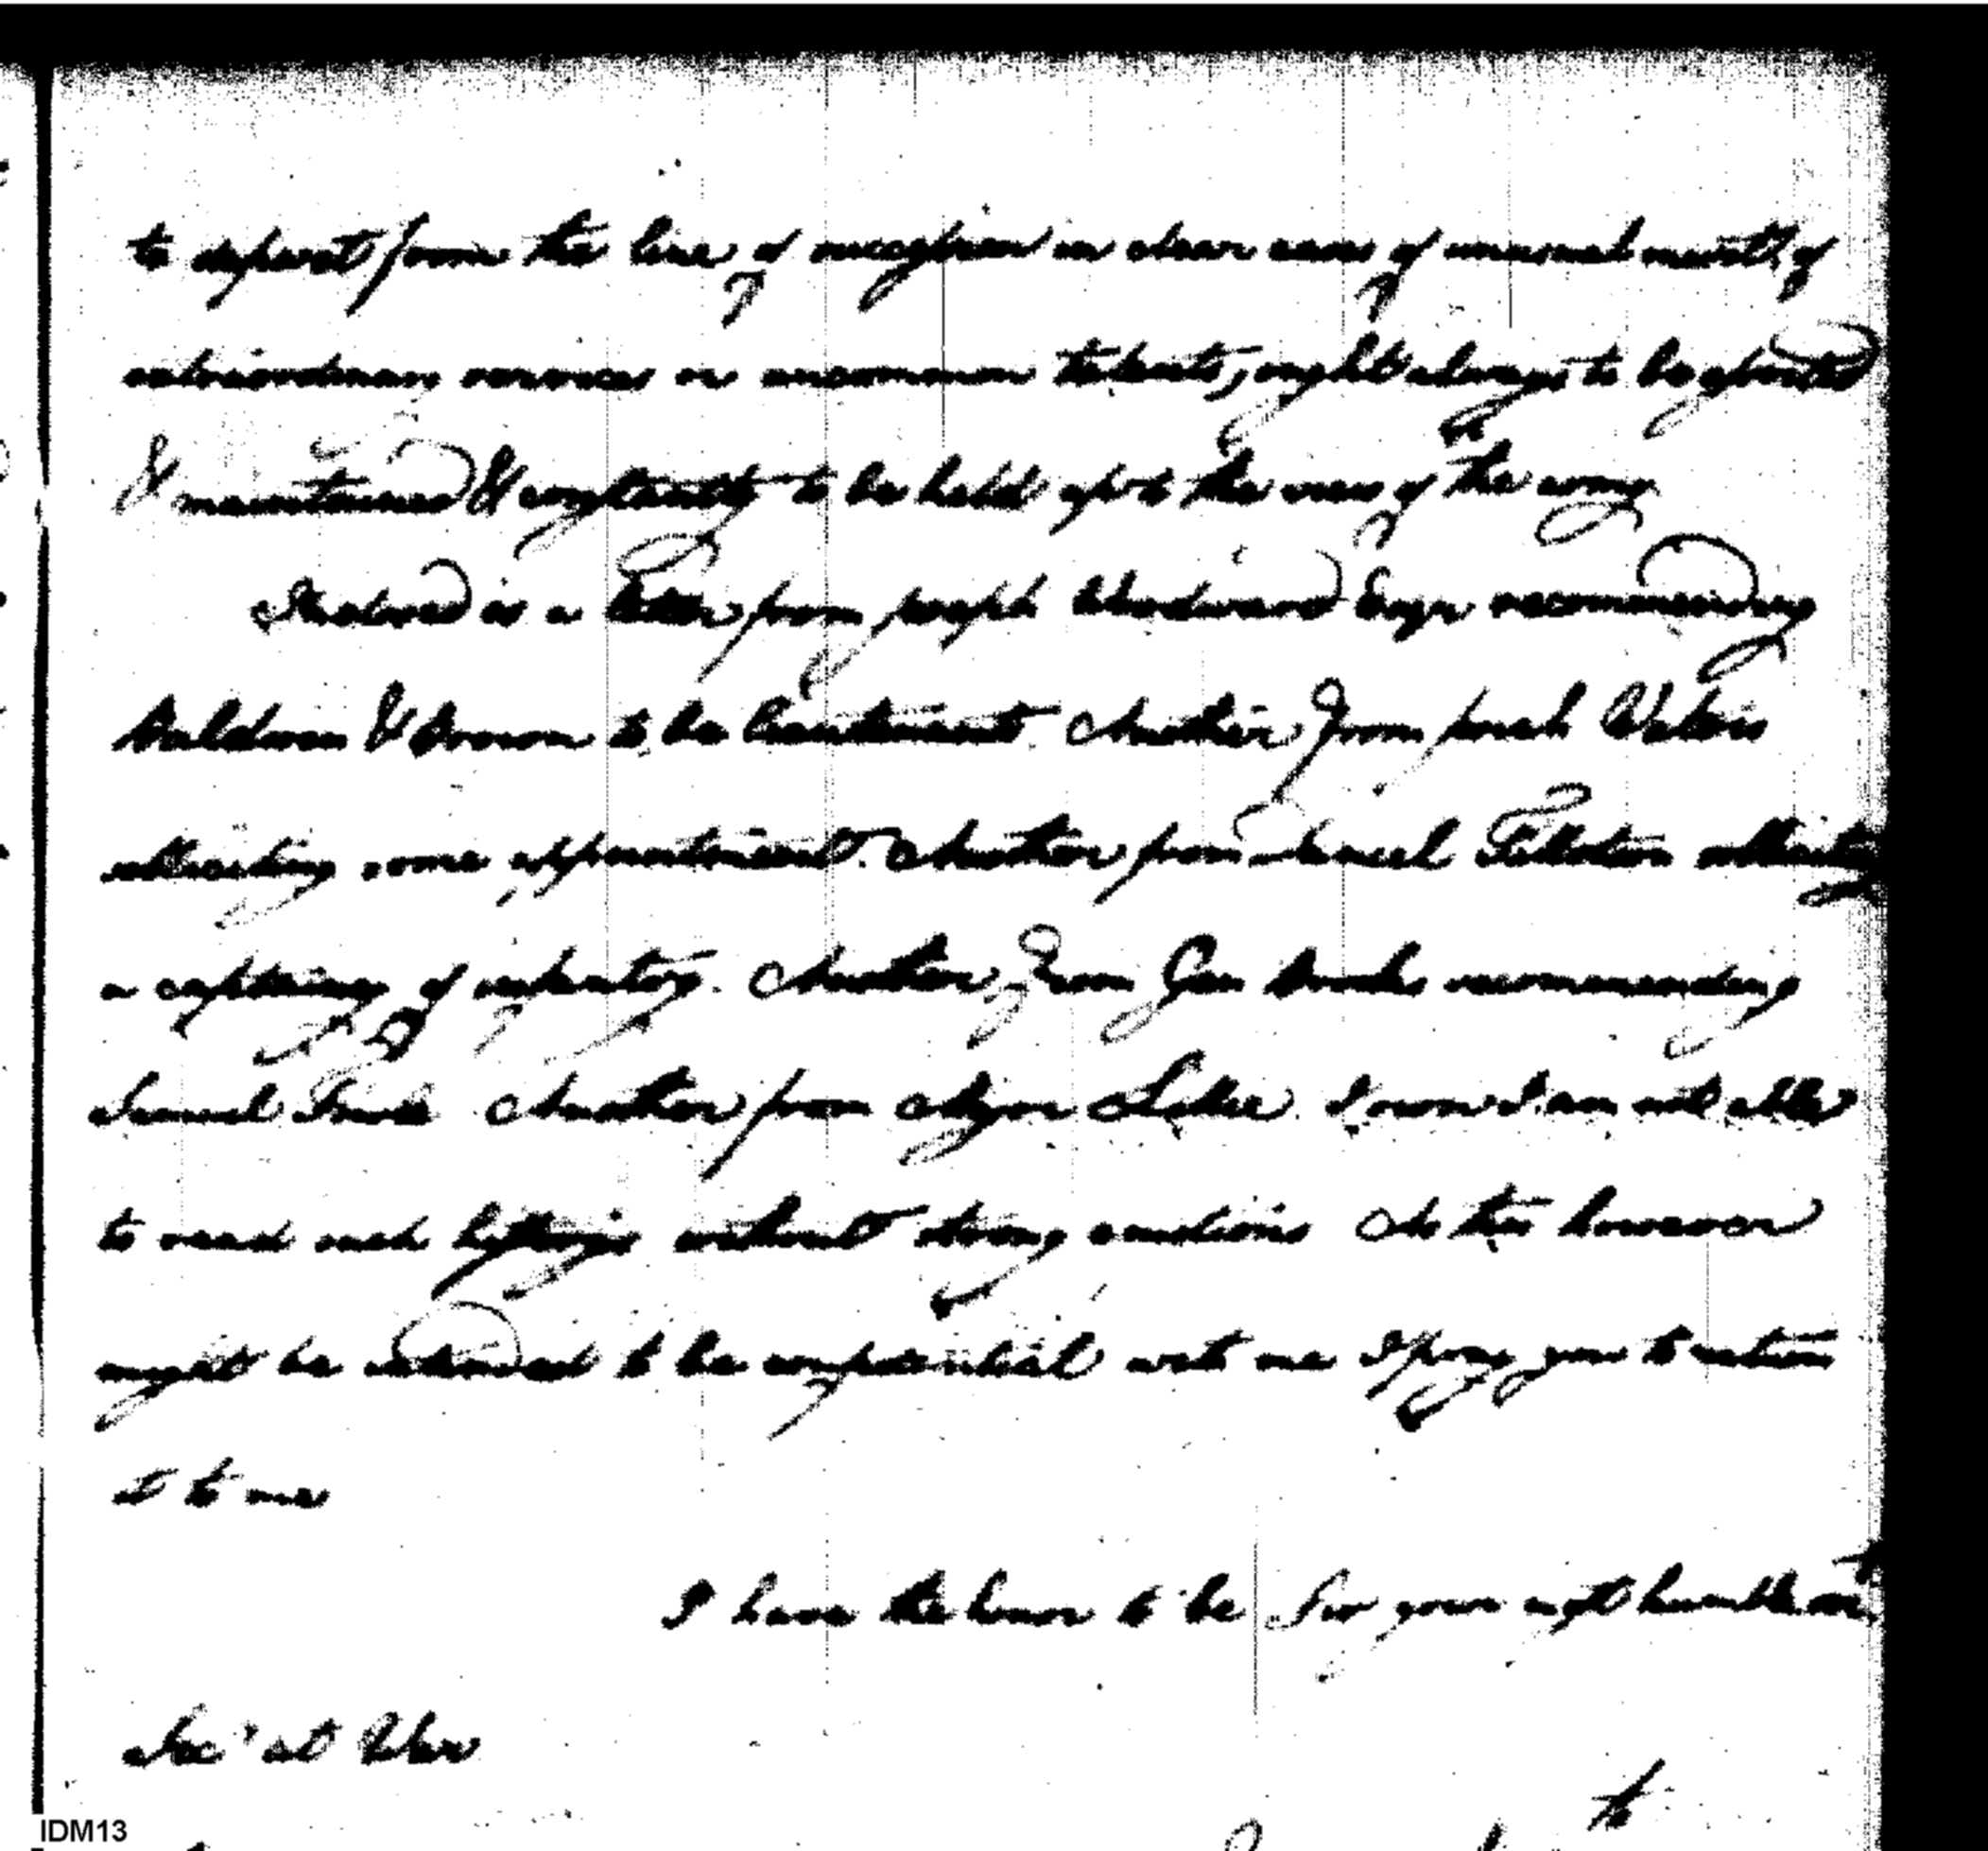 to depart from the line of succession in clear cases of unusual merit, of
extraordinary services or uncommon talents, ought always to be asserted
& maintained & constantly to be held up to the view of the army
Inclosed is a letter from Joseph Woodward Esqr recommending
Baldwin & Brown to be lieutenants. Another from Josiah Waters
solliciting some appointment. Another from Daniel Tillotson solliciting
a captaincy of infantry. Another from Gen Brooks recommending
Samuel Another from Major Lillie. I own I am not able
to read such without strong emotions As this however
might be intended to be confidential with me I pray you to return
it to me
I have the honor to be Sir your most humble ser
Secy at War
IDM13